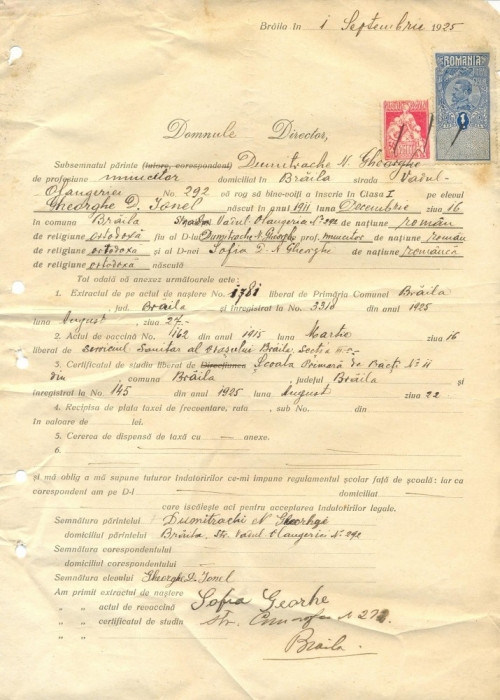 Brăila în 1 Septembrie 1925
ROMANIA
Domnule Director,
Subsemnatul părinte (tutore, corespondent) Dumitrache N. Gheorghe
de profesiune muncitor domiciliat în Brăila strada Vadul-
Olangeriei No. 292 vă rog să bine-voiți a înscrie în Clasa I pe elevul
Gheorghe D. Ionel născut în anul 1911 luna Decembrie ziua 16
în comuna Brăila Strada Vadul Olangeria No 292 de națiune român
de religiune ortodoxă fiu al D-lui Dumitrache N. Gheorghe prof. muncitor de națiune român
de religiune ortodoxă și al D-nei Sofia D. N Gheorghe de națiune română
de religiune ortodoxă născută
Tot odată vă anexez următoarele acte:
1. Extractul de pe actul de naștere No. 1781 liberat de Primăria Comunei Brăila
, jud. Braila și înregistrat la No. 3310 din anul 1925
luna August, ziua 27.-
2. Actul de vaccină No. 1162 din anul 1915 luna Martie ziua 16
liberat de serviciul Sanitar al orașului Brăila Secția III-a
3. Certificatul de studiu liberat de Direcțiunea Școala Primară de Baeți No 11
din comuna Brăila, județul Brăila și
înregistrat la No. 145 din anul 1925 luna August ziua 22
4. Recipisa de plata taxei de frecventare, rata , sub No. din
în valoare de lei.
5. Cererea de dispensă de taxă cu — anexe.
6.
și mă oblig a mă supune tuturor îndatoririlor ce-mi impune regulamentul școlar față de școală: iar ca
corespondent am pe D-l domiciliat
care iscălește aci pentru acceptarea îndatoririlor legale.
Semnătura părintelui Dumitrachi N Gheorhge
domiciliul părintelui Brăila, Str. Vadul Olangeriei No 292
Semnătura corespondentului
domiciliul corespondentului
Semnătura elevului Gheorghe D. Ionel
Am primit extractul de naștere
„ „ actul de revoccină Sofia Georhe
„ „ certificatul de studiu Str.
„ „ Brăila